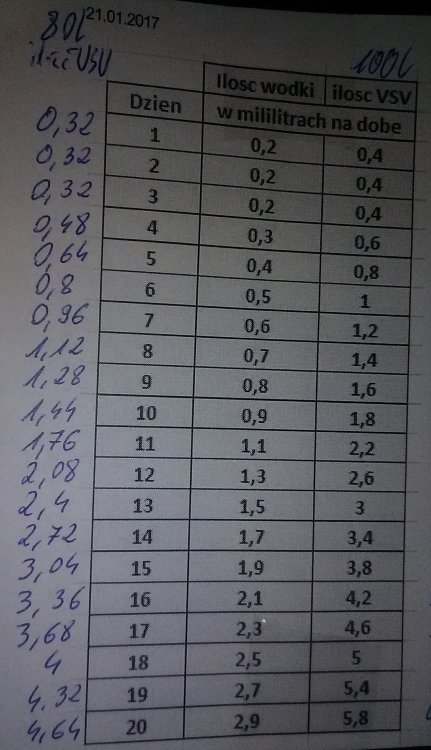 80l 21.01.2017
ilość VSV 100l
Ilosc wodki ilosc VSV
Dzien w mililitrach na dobe
0,32 1 0,2 0,4
0,32 2 0,2 0,4
0,32 3 0,2 0,4
0,48 4 0,3 0,6
0,64 5 0,4 0,8
0,8 6 0,5 1
0,96 7 0,6 1,2
1,12 8 0,7 1,4
1,28 9 0,8 1,6
1,44 10 0,9 1,8
1,76 11 1,1 2,2
2,08 12 1,3 2,6
2,4 13 1,5 3
2,72 14 1,7 3,4
3,04 15 1,9 3,8
3,36 16 2,1 4,2
3,68 17 2,3 4,6
4 18 2,5 5
4.32 19 2,7 5,4
4,64 20 2,9 5,8